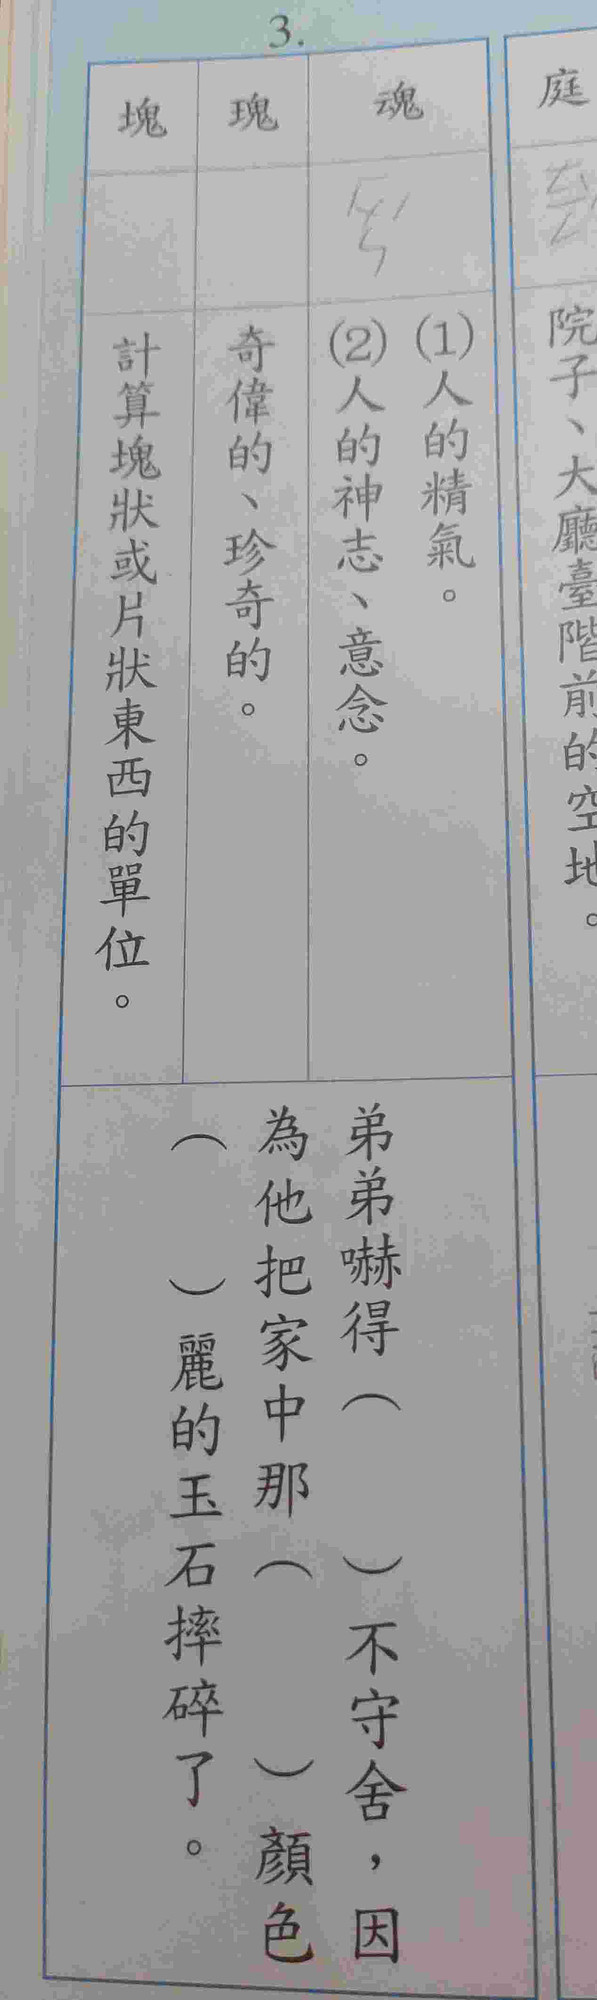 3.
庭
院子、大廳臺階前的空地。
魂
(1)人的精氣。
(2)人的神志、意念。
瑰
奇偉的、珍奇的。
塊
計算塊狀或片狀東西的單位。
弟弟嚇得（　　）不守舍，因
為他把家中那（　　）顏色
（　　）麗的玉石摔碎了。